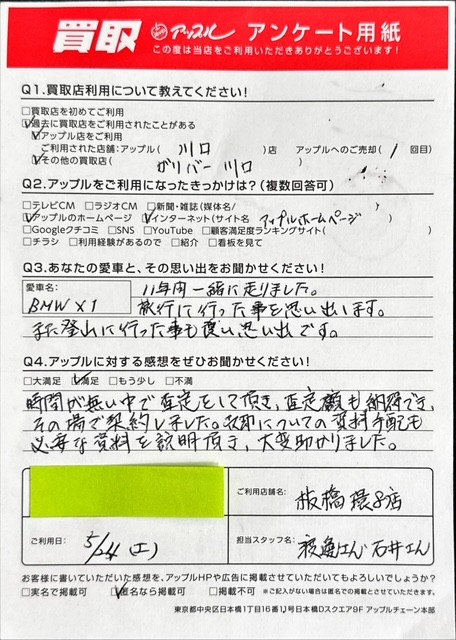 買取 アップル アンケート用紙
この度は当店をご利用いただきありがとうございます!
Q1.買取店利用について教えてください!
□買取店を初めてご利用
☑過去に買取店をご利用されたことがある
☑アップル店をご利用
ご利用された店舗:アップル( 川口 )店 アップルへのご売却( 1 回目)
☑その他の買取店( ガリバー川口 )
Q2.アップルをご利用になったきっかけは?(複数回答可)
□テレビCM □ラジオCM □新聞・雑誌(媒体名/ )
☑アップルのホームページ ☑インターネット(サイト名 アップルホームページ )
□Googleクチコミ □SNS □YouTube □顧客満足度ランキングサイト( )
□チラシ □利用経験があるので □紹介 □看板を見て
Q3.あなたの愛車と、その思い出をお聞かせください!
愛車名: BMW X1
11年間一緒に走りました。
旅行に行った事を思い出います。
また登山に行った事も良い思い出です。
Q4.アップルに対する感想をぜひお聞かせください!
□大満足 ☑満足 □もう少し □不満
時間が無い中で査定をして頂き、査定額も納得でき、
その場で契約しました。についての資料手配も
必要な資料を説明頂き、大変助かりました。
ご利用店舗名: 板橋環8店
ご利用日: 5/24(土)
担当スタッフ名: 石井さん
お客様に書いていただいた感想を、アップルHPや広告に掲載させていただいてもよろしいでしょうか?
□実名で掲載可 ☑匿名なら掲載可 □掲載不可 ※ご記入がない場合は匿名での掲載とさせていただきます。
東京都中央区日本橋1丁目16番11号日本橋Dスクエア9F アップルチェーン本部